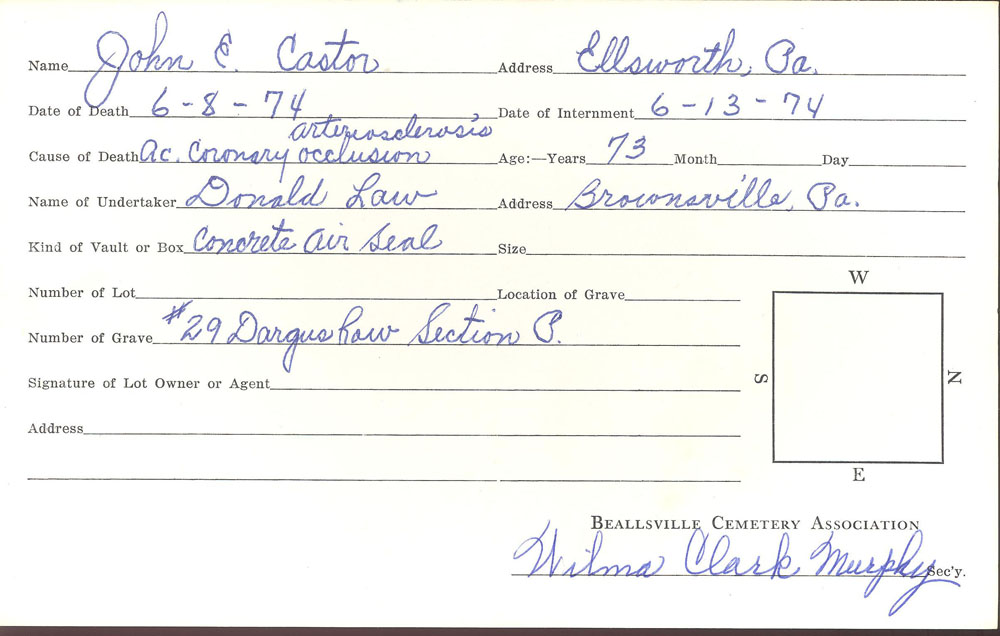 Name John E. Castor Address Ellsworth, Pa.
Date of Death 6-8-74 Date of Internment 6-13-74
arteriosclerosis
Cause of Death Ac. Coronary occlusion Age:—Years 73 Month Day
Name of Undertaker Donald Law Address Brownsville, Pa.
Kind of Vault or Box Concrete Air Seal Size
Number of Lot Location of Grave
Number of Grave #29 Dargus Row Section P.
Signature of Lot Owner or Agent
Address
W
S
N
E
BEALLSVILLE CEMETERY ASSOCIATION
Wilma Clark Murphy Sec'y.